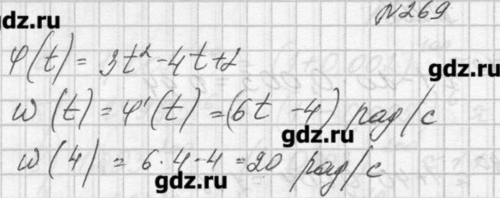 №269
gdz.ru
φ(t) = 3t² - 4t + 2
gdz.ru
ω(t) = φ'(t) = (6t - 4) рад/с
gdz.ru
ω(4) = 6·4-4 = 20 рад/с
gdz.ru